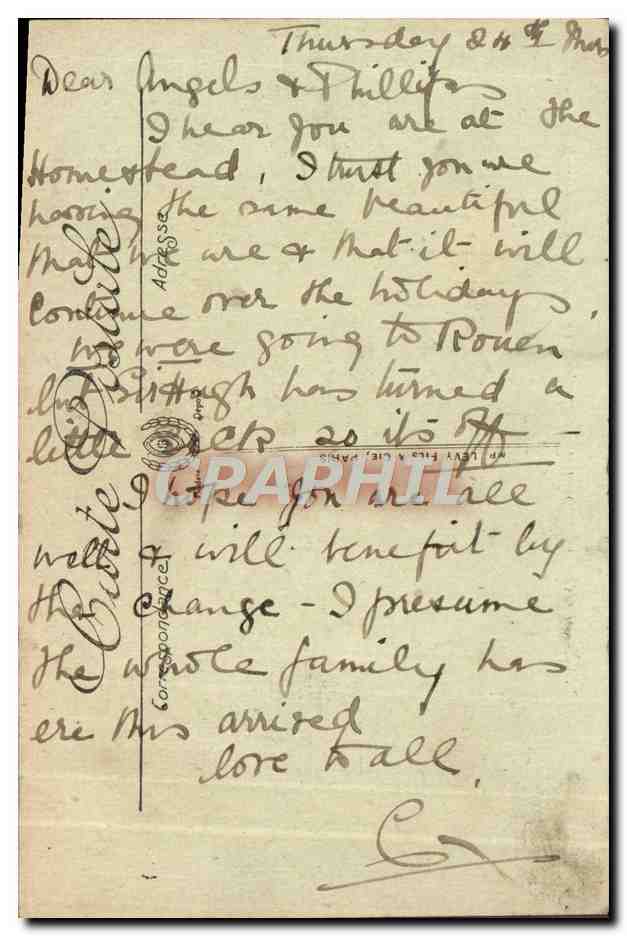 Thursday 24th Mar
Dear Angels & Phillips
I hear you are at the
Homestead, I trust you are
having the same beautiful
that we are & that it will
continue over the holidays,
We were going to Rouen
but Sir Hugh has turned a
little sick so its off -
I hope you are all
well & will benefit by
the change - I presume
the whole family has
ere this arrived
love to all,
Carte Postale
Correspondance
Adresse
LEVY FILS & CIE, PARIS
CPAPHIL